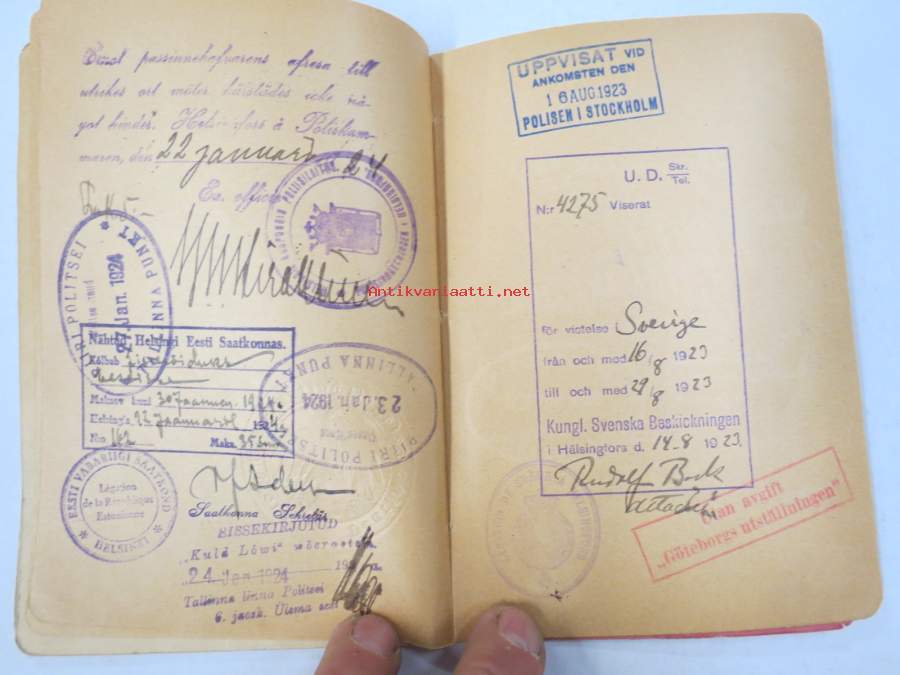 Emot passinnehafvarens afresa till
utrikes ort möter härstädes icke nå-
got hinder. Helsingfors å Poliskam-
maren, den 22 januari 24
Ex officio
Fmk 5:-
27. Jan. 1924
Nähtud Helsingi Eesti Saatkonnas.
Kõlbab
Maksev kuni 30 Jaanuar 1924
Helsingis 22 Jaanuaril 1924
No 162 Maks. 35
PIIRI POLITSEI
TALLINNA PUNKT
23 Jan. 1924
EESTI VABARIIGI SAATKOND
Légation
de la République
Estonienne
* HELSINKI *
Saatkonna Sekretär
SISSEKIRJUTUD
"Kuld Lõwi" wõõrastem.
24 Jan 1924
Tallinna linna Politsei
6. jaosk. Ülema
Antikvariaatti.net
UPPVISAT VID
ANKOMSTEN DEN
16 AUG. 1923
POLISEN I STOCKHOLM
U. D. Skr.
Tel.
N:r 4275 Viserat
för vistelse Sverige
från och med 16/8 1923
till och med 29/8 1923
Kungl. Svenska Beskickningen
i Hälsingfors d. 14.8 1923.
Rudolf Beck
attaché
Utan avgift
„Göteborgs utställningen"